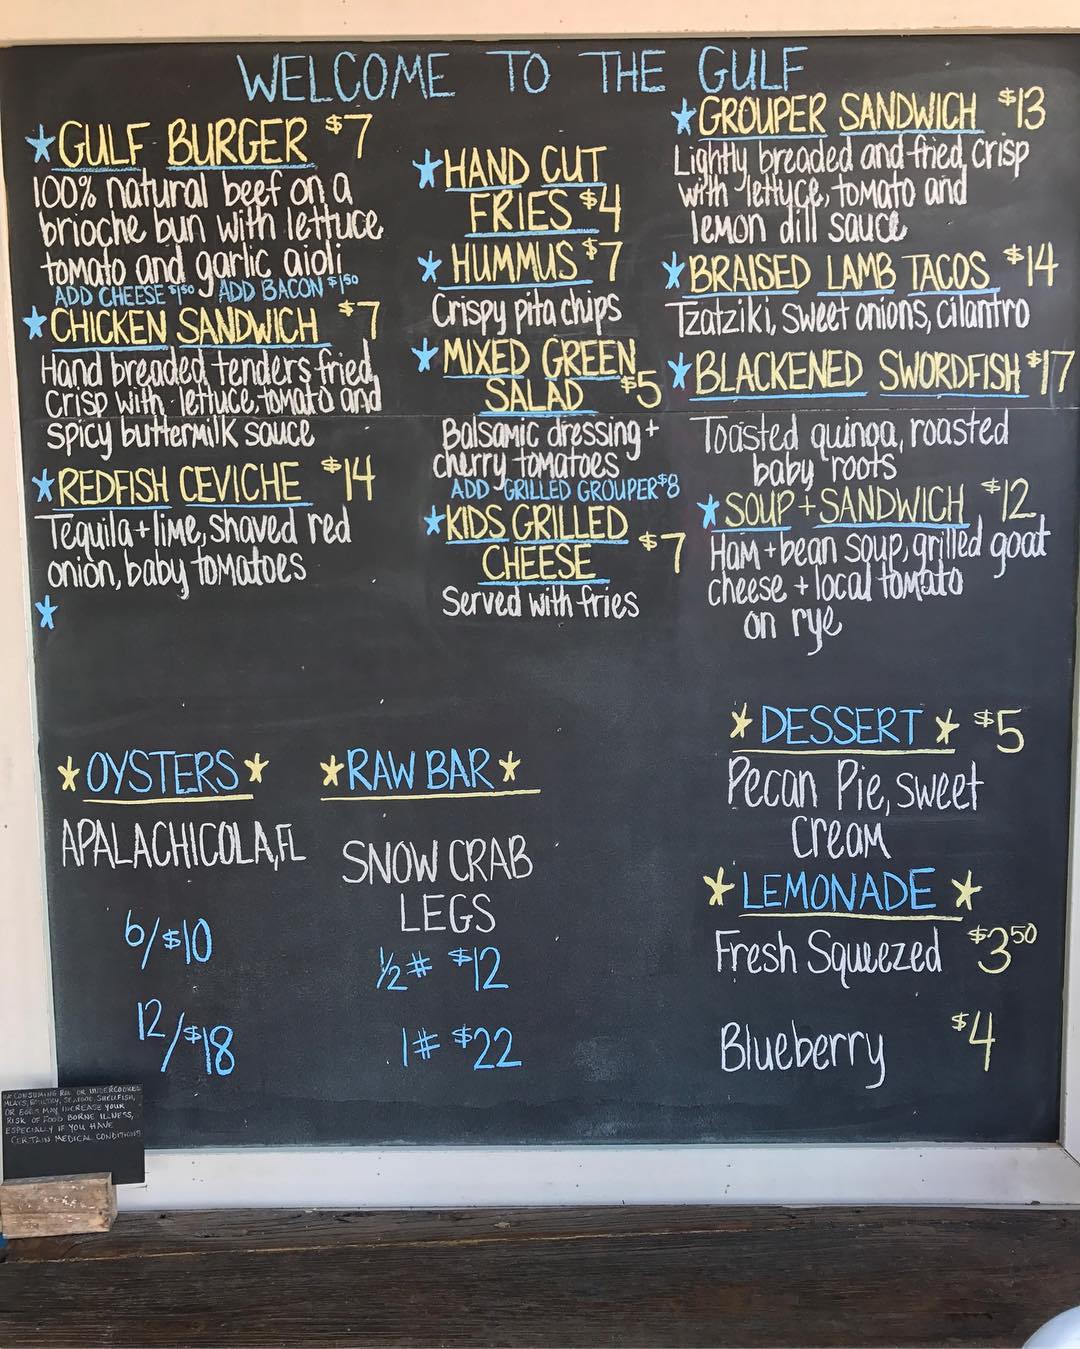 WELCOME TO THE GULF
GULF BURGER $7
100% natural beef on a
brioche bun with lettuce
tomato and garlic aioli
ADD CHEESE $1.50 ADD BACON $1.50
CHICKEN SANDWICH $7
Hand breaded tenders fried
crisp with lettuce, tomato and
spicy buttermilk sauce
REDFISH CEVICHE $14
Tequila + lime, shaved red
onion, baby tomatoes
HAND CUT
FRIES $4
HUMMUS $7
Crispy pita chips
MIXED GREEN
SALAD $5
Balsamic dressing +
cherry tomatoes
ADD GRILLED GROUPER $8
KIDS GRILLED
CHEESE $7
Served with fries
GROUPER SANDWICH $13
Lightly breaded and fried crisp
with lettuce, tomato and
lemon dill sauce
BRAISED LAMB TACOS $14
Tzatziki, sweet onions, cilantro
BLACKENED SWORDFISH $17
Toasted quinoa, roasted
baby roots
SOUP + SANDWICH $12
Ham + bean soup, grilled goat
cheese + local tomato
on rye
OYSTERS
APALACHICOLA, FL
6/$10
12/$18
RAW BAR
SNOW CRAB
LEGS
1/2 # $12
1# $22
DESSERT $5
Pecan Pie, sweet
cream
LEMONADE
Fresh Squeezed $3 50
Blueberry $4
CONSUMING RAW OR UNDERCOOKED
MEATS, POULTRY, SEAFOOD, SHELLFISH,
OR EGGS MAY INCREASE YOUR
RISK OF FOOD BORNE ILLNESS,
ESPECIALLY IF YOU HAVE
CERTAIN MEDICAL CONDITIONS